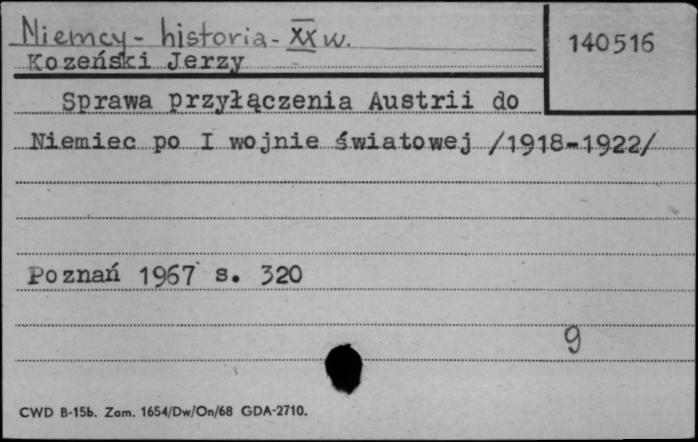 Niemcy - historia - XX w.
140516
Kozeński Jerzy
Sprawa przyłączenia Austrii do
Niemiec po I wojnie światowej /1918-1922/
Poznań 1967 s. 320
9
CWD B-15b. Zam. 1654/Dw/On/68 GDA-2710.